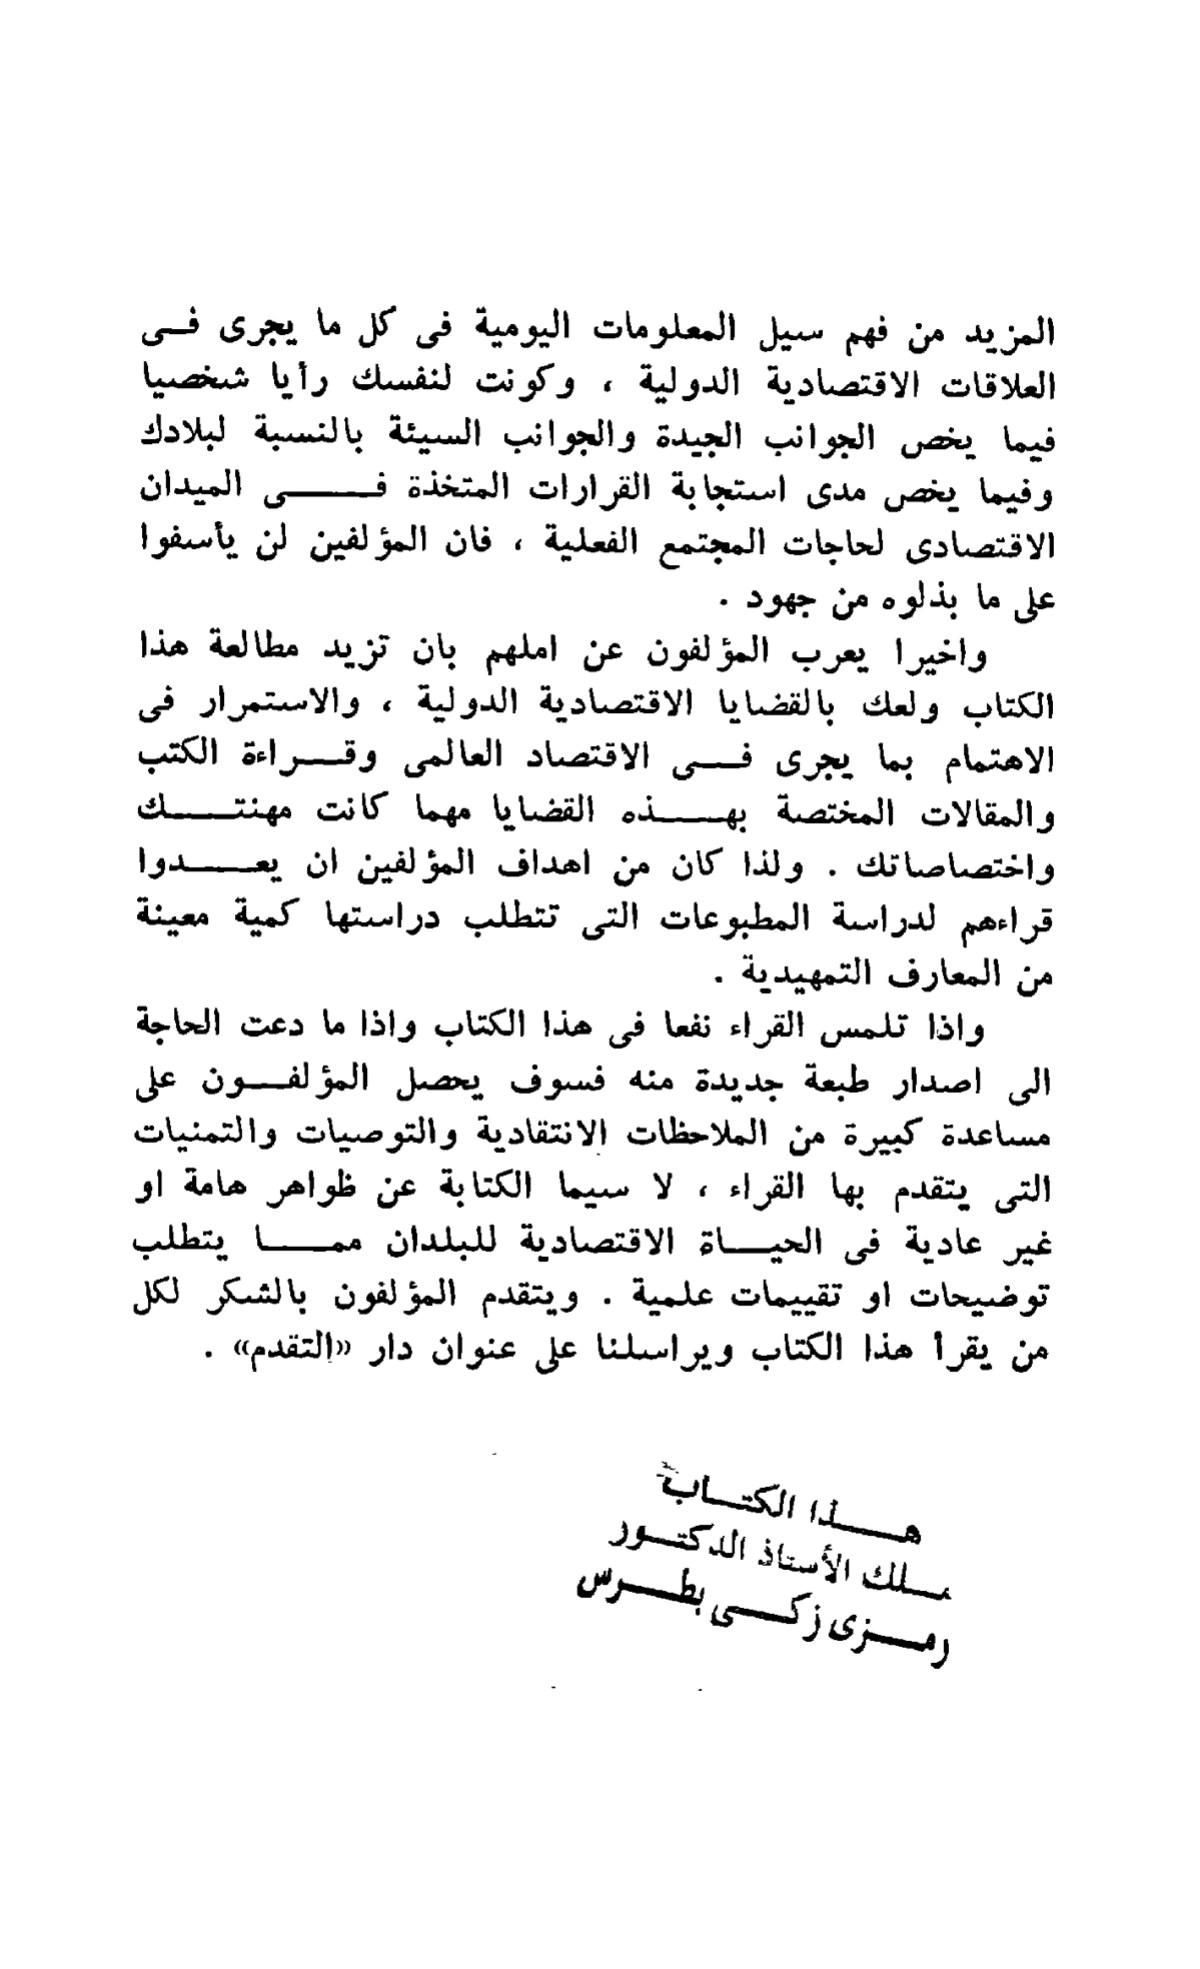 المزيد من فهم سيل المعلومات اليومية فى كل ما يجرى فــى
العلاقات الاقتصادية الدولية ، وكونت لنفسك رأيا شخصيا
فيما يخص الجوانب الجيدة والجوانب السيئة بالنسبة لبلادك
وفيما يخص مدى استجابة القرارات المتخذة فـــــى الميدان
الاقتصادى لحاجات المجتمع الفعلية ، فان المؤلفين لن يأسفوا
على ما بذلوه من جهود .
واخيرا يعرب المؤلفون عن املهم بان تزيد مطالعة هذا
الكتاب ولعك بالقضايا الاقتصادية الدولية ، والاستمرار فى
الاهتمام بما يجرى فـــى الاقتصاد العالمى وقـــراءة الكتب
والمقالات المختصة بهــــذه القضايا مهما كانت مهنتـــــك
واختصاصاتك . ولذا كان من اهداف المؤلفين ان يعـــــدوا
قراءهم لدراسة المطبوعات التى تتطلب دراستها كمية معينة
من المعارف التمهيدية .
واذا تلمس القراء نفعا فى هذا الكتاب واذا ما دعت الحاجة
الى اصدار طبعة جديدة منه فسوف يحصل المؤلفـــون على
مساعدة كبيرة من الملاحظات الانتقادية والتوصيات والتمنيات
التى يتقدم بها القراء ، لا سيما الكتابة عن ظواهر هامة او
غير عادية فى الحيـــاة الاقتصادية للبلدان ممــــا يتطلب
توضيحات او تقييمات علمية . ويتقدم المؤلفون بالشكر لكل
من يقرأ هذا الكتاب ويراسلنا على عنوان دار «التقدم» .
هــــذا الكتــاب
ملك الأستاذ الدكتــور
رمــزى زكــى بطــرس